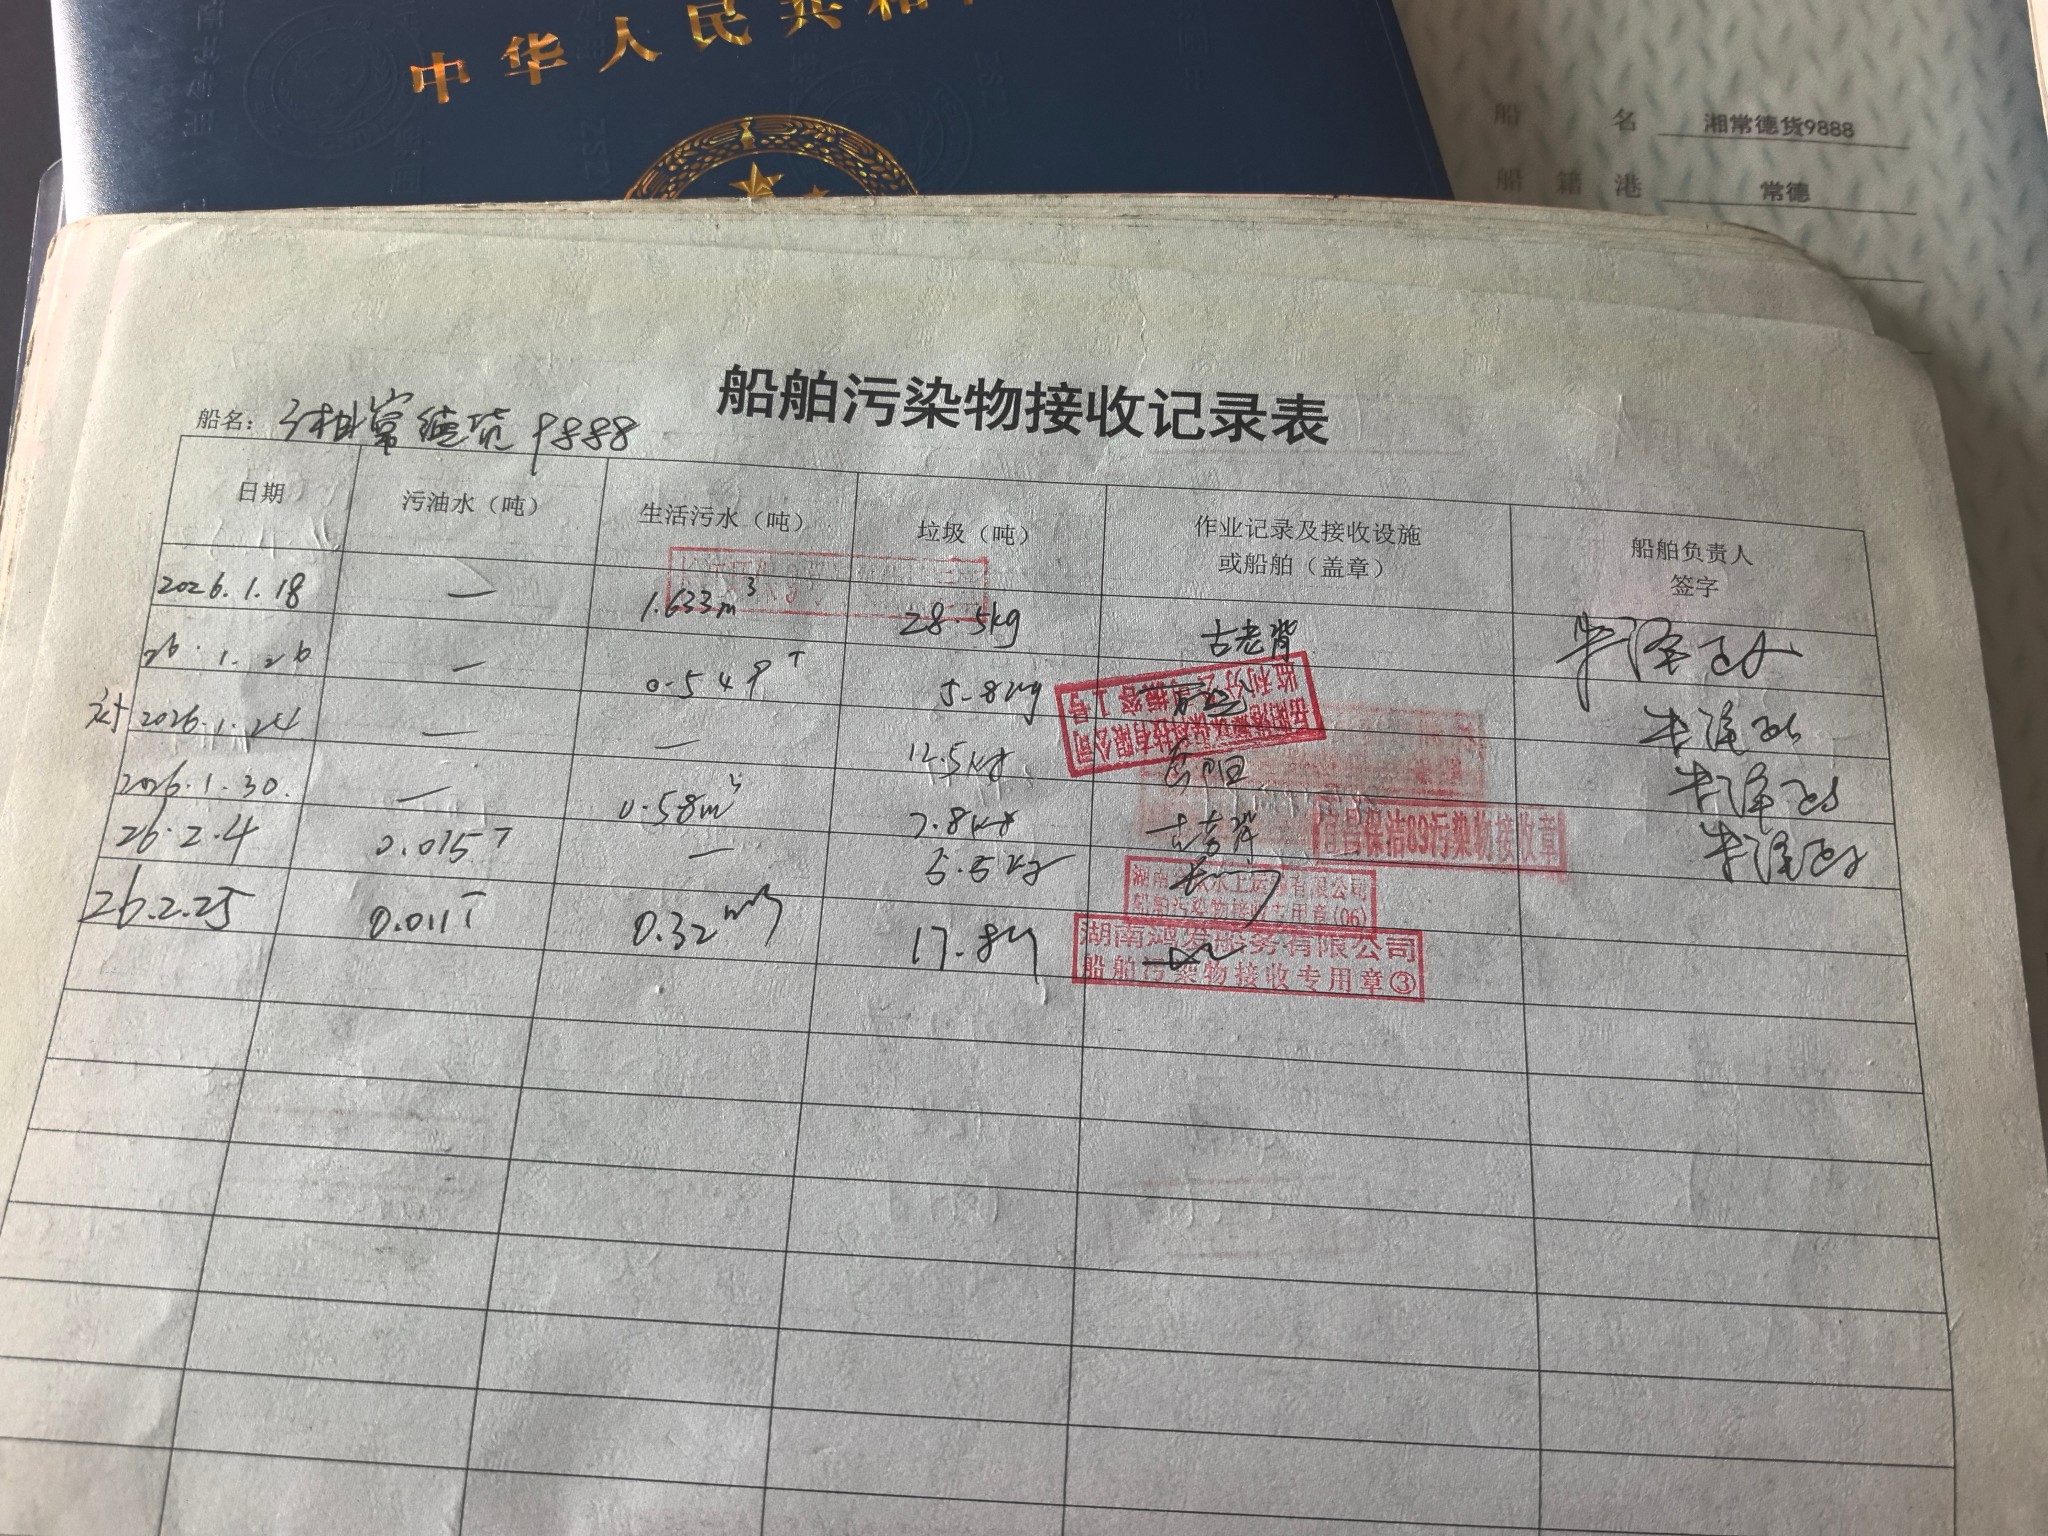 中华人民共和
船 名 湘常德货9888
船 籍 港 常德
船舶污染物接收记录表
船名: 湘常德货9888
日期 污油水（吨） 生活污水（吨） 垃圾（吨） 作业记录及接收设施或船舶（盖章） 船舶负责人签字
2026.1.18 — 1.633m³ 28.5kg 古老背
26.1.26 — 0.549T 5.8kg
补 2026.1.24 — — 12.5kg
2026.1.30. — 0.58m³ 7.8kg 古老背
26.2.4 0.015T — 5.5kg
26.2.25 0.011T 0.32m³ 17.8kg
有限公司
监利分公司
1号
保洁89污染物接收章
湖南 水上运 有限公司
船舶污染物接收专用章(06)
湖南鸿发船务有限公司
船舶污染物接收专用章③